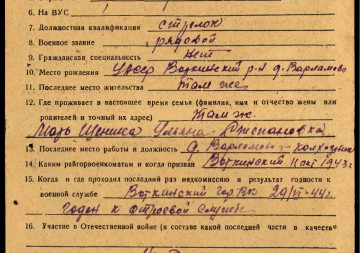 6. На ВУС 1
7. Должностная квалификация стрелок
8. Военное звание рядовой
9. Гражданская специальность нет
10. Место рождения Увсср Воткинский р-н д. Варламово
11. Последнее место жительства Там же
12. Где проживает в настоящее время семья (фамилия, имя и отчество жены или
родителей и точный их адрес) Там же.
Мать Ульяна
13. Последнее место работы и должность д. Варламово - колхозник
14. Каким райгорвоенкоматом и когда призван Воткинский 11 окт 1943 г
15. Когда и где проходил последний раз медкомиссию и результат годности к
военной службе Воткинский горВК 29/VI-44 г.
годен к строевой службе
16. Участие в Отечественной войне (в составе какой последней части в качестве